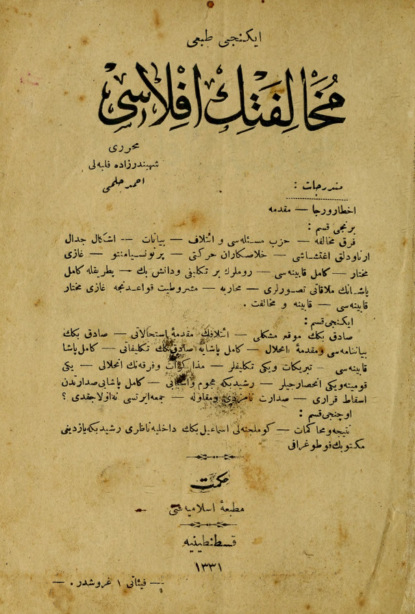 ایكنجی طبعی
مخالفتك افلاسی
محرری
شهبندرزاده فلبه‌لی
احمد حلمی
مندرجات :
اخطار ورجا — مقدمه
برنجی قسم :
فرق مخالفه — حزب مسئله‌سی و ائتلاف — بیانات — اشكال جدال
ارناودلق اغتشاشی — خلاصكاران حركتی — پرونسیامنتو — غازی
مختار — كامل قابینه‌سی — روملرك بر تكلیفی ودانش بك — بطریقله كامل
پاشانك ملاقاتی تصورلری — محاربه — مشروطیت قواعدنجه غازی مختار
قابینه‌سی — قابینه و مخالفت .
ایكنجی قسم :
صادق بكك موقع مشكلی — ائتلافك مقدمهٔ استحالاتی — صادق بكك
بیاننامه‌سی ومقدمهٔ انحلال — كامل پاشایه صادق بكك تكلیفاتی — كامل پاشا
قابینه‌سی — تبریكات ویكی تكلیفلر — مذاكرات وفرقه‌نك انحلالی — یكی
قومیته ویكی انحصارجیلر — رشید بكه هجوم — كامل پاشایی صدارتدن
اسقاط قراری — صدارت نامزدی ومقاوله — جمعه ایرتسی نه اولاجقدی ؟
اوچنجی قسم :
نتیجه ومحاكمات — كوملجنه‌لی اسماعیل بكك داخلیه ناظری رشید بكه یازدیغی
مكتوبك فوطوغرافی
حكمت
مطبعهٔ اسلامیه‌سی
قسطنطینیه
١٣٣١
— فیئاتی ١ غروشدر . —